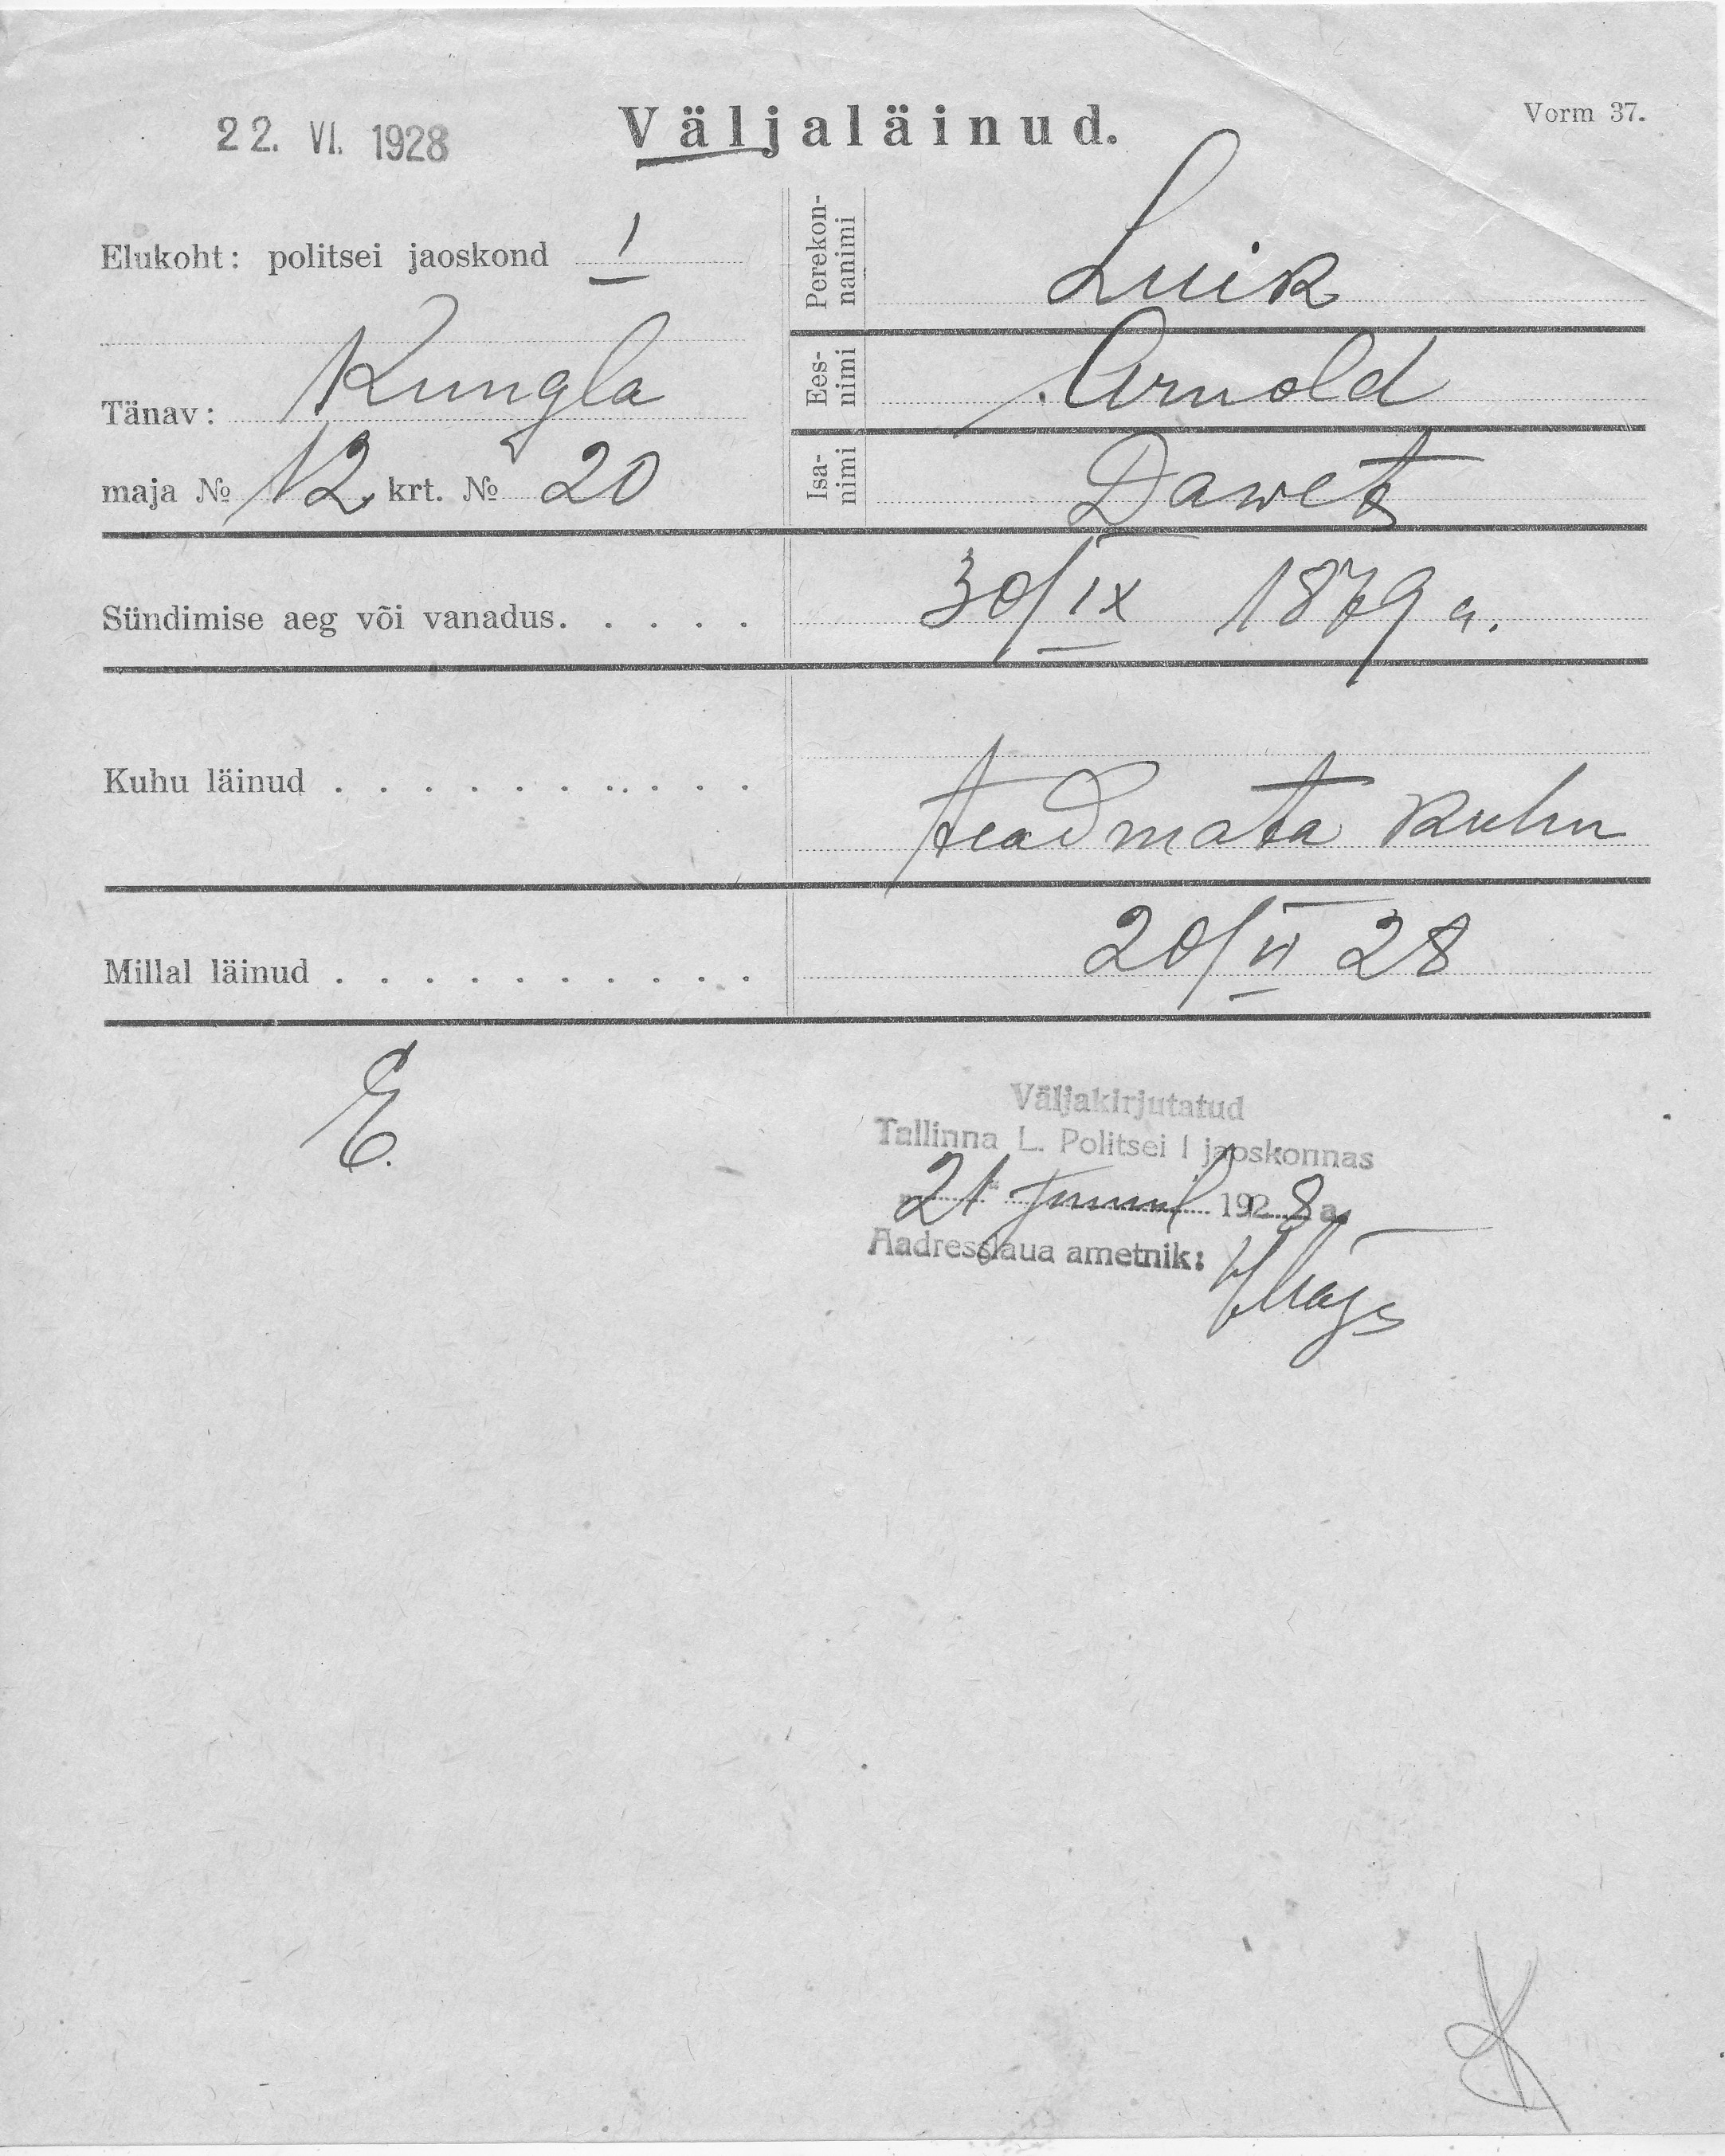 22. VI. 1928
Väljaläinud.
Vorm 37.
Elukoht: politsei jaoskond I
Tänav: Kungla
maja № 12, krt. № 20
Perekon-
nanimi
Luik
Ees-
nimi
Arnold
Isa-
nimi
Dawet
Sündimise aeg või vanadus. . . . . 30/IX 1879 a.
Kuhu läinud . . . . . . . . . . teadmata kuhu
Millal läinud . . . . . . . . . . 20/VI 28
E.
Väljakirjutatud
Tallinna L. Politsei I jaoskonnas
„21" Juunil 1928 a.
Aadresslaua ametnik: